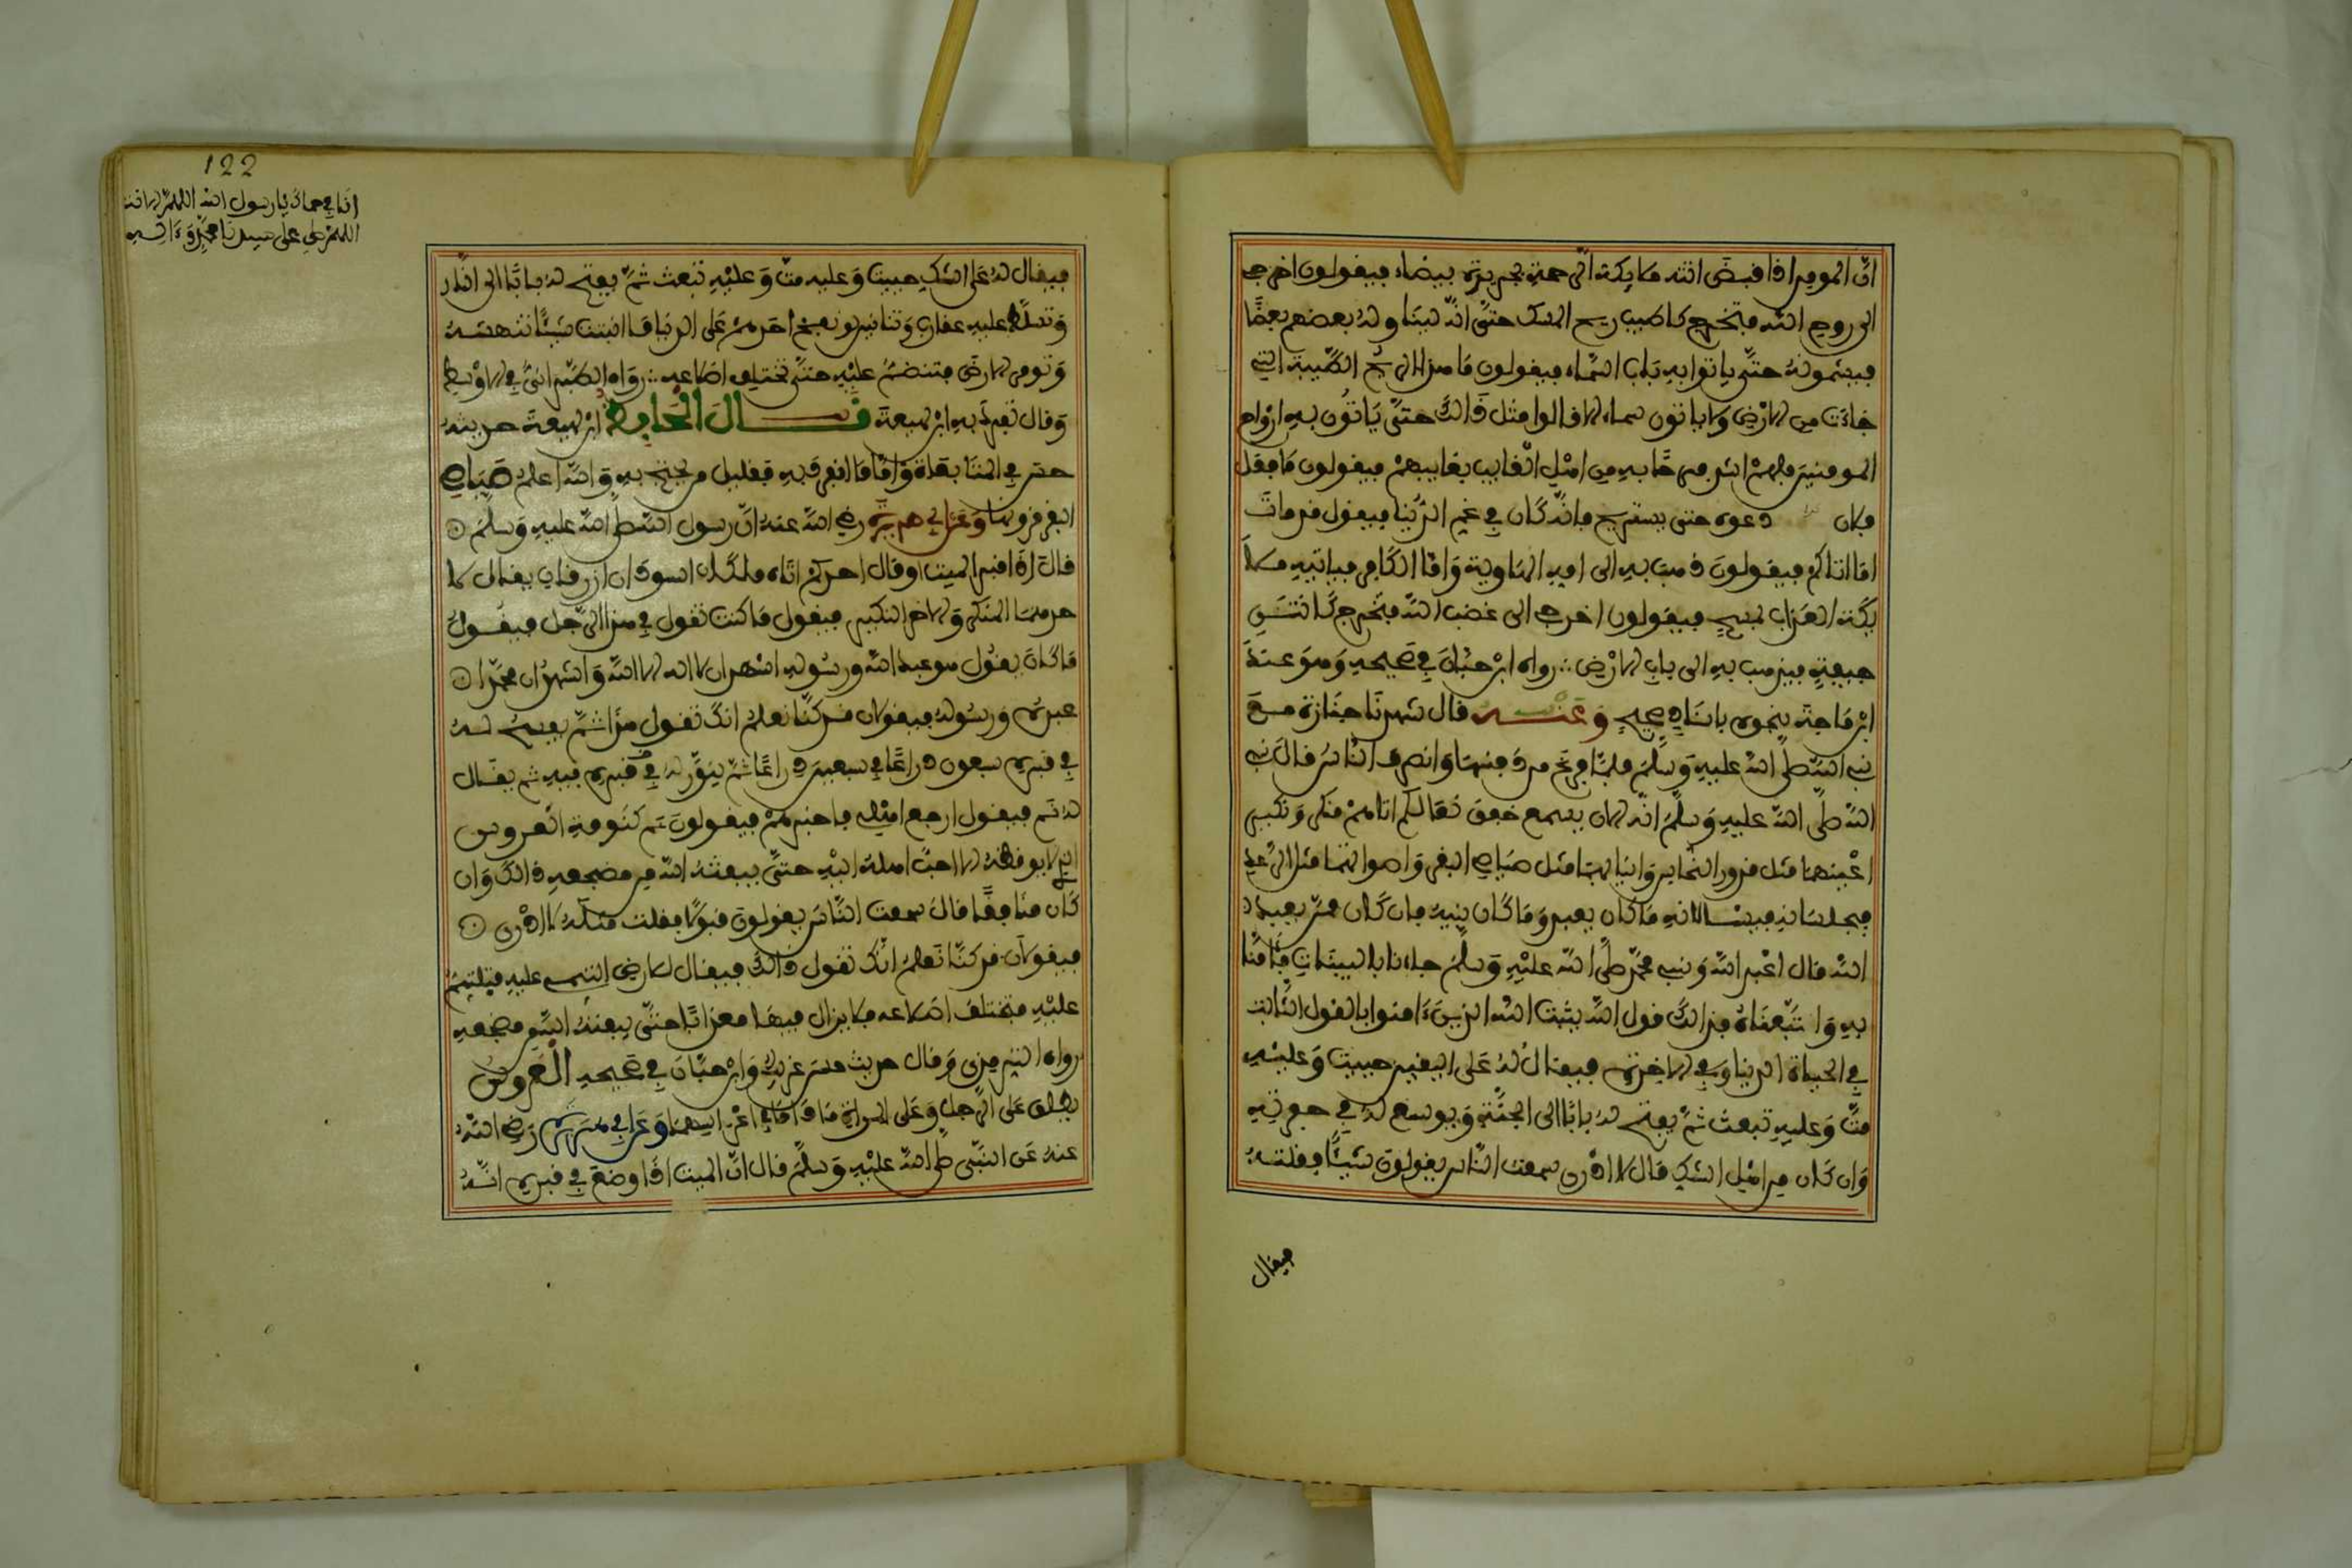 ان المومن اذا قبض اتته ملايكة الرحمة بحريرة بيضاء فيقولون اخرجي
الى روح الله فتخرج كاطيب ريح المسك حتى انه ليناوله بعضهم بعضا
فيشمونه حتى ياتوا به باب السماء فيقولون ما هذا الريح الطيبة التي
جاءت من الارض ولا ياتون سماء الا قالوا مثل ذالك حتى ياتون به ارواح
المومنين فلهم اشد فرحا به من اهل الغايب بغايبهم فيقولون ما فعل
فلان دعوه حتى يستريح فانه كان في غم الدنيا فيقول قد مات
اما اتاكم فيقولون ذهب به الى امه الهاوية واما الكافر فياتيه ملا
يكة العذاب بمسح فيقولون اخرجي الى غضب الله فتخرج كانتن
جيفة فيذهب به الى باب الارض رواه ابن حبان في صحيحه وهو عند
ابن ماجة بنحوه باسناد صحيح وعنه قال شهدنا جنازة مع
نبي الله صلى الله عليه وسلم فلما فرغ من دفنها وانصرف الناس قال نبي
الله صلى الله عليه وسلم انه الان يسمع خفق نعالكم اتاه منكر ونكير
اعينهما مثل قدور النحاس وانيابهما مثل صياصي البقر واصواتهما مثل الرعد
فيجلسانه فيسالانه ما كان يعبد وما كان نبيه فان كان ممن يعبد
الله قال اعبد الله ونبيي محمد صلى الله عليه وسلم جاءنا بالبينات فامنا
به واتبعناه فذالك قول الله يثبت الله الذين ءامنوا بالقول الثابت
في الحياة الدنيا وفي الاخرة فيقال له على اليقين حييت وعليه
مت وعليه تبعث ثم يفتح له بابا الى الجنة ويوسع له في حفرته
وان كان من اهل الشك قال لا ادري سمعت الناس يقولون شيئا فقلته
فيقال
122
انا في حماك يا رسول الله
اللهم صل على سيدنا محمد وءاله
فيقال له على الشك حييت وعليه مت وعليه تبعث ثم يفتح له بابا الى النار
وتسلط عليه عقارب وتنانين لو نفخ احدهم على الدنيا ما انبتت شيئا تنهشه
وتومر الارض فتنضم عليه حتى تختلف اضلاعه رواه الطبراني في الاوسط
وقال تفرد به ابن لهيعة قال الحافظ ابن لهيعة حديثه
حسن في المتابعات واما ما انفرد به فقليل من يحتج به والله اعلم صياصي
البقر قرونها وعن ابي هريرة رضي الله عنه ان رسول الله صلى الله عليه وسلم
قال اذا قبر الميت او قال احدكم اتاه ملكان اسودان ازرقان يقال لا
حدهما المنكر والاخر النكير فيقول ما كنت تقول في هذا الرجل فيقول
ما كان يقول هو عبد الله ورسوله اشهد ان لا اله الا الله واشهد ان محمدا
عبده ورسوله فيقولان قد كنا نعلم انك تقول هذا ثم يفسح له
في قبره سبعون ذراعا في سبعين ذراعا ثم ينور له في قبره فيه ثم يقال
له نم فيقول ارجع اهلي فاخبرهم فيقولون نم كنومة العروس
الذي لا يوقظه الا احب اهله اليه حتى يبعثه الله من مضجعه ذالك وان
كان منافقا قال سمعت الناس يقولون قولا فقلت مثله لا ادري
فيقولان قد كنا نعلم انك تقول ذالك فيقال للارض التئمي عليه فتلتئم
عليه فتختلف اضلاعه فلا يزال فيها معذبا حتى يبعثه الله من مضجعه
رواه الترمذي وقال حديث حسن غريب وابن حبان في صحيحه العروس
يطلق على الرجل وعلى المراة ما داما في اعراسهما وعن ابي هريرة رضي الله
عنه عن النبي صلى الله عليه وسلم قال ان الميت اذا وضع في قبره انه